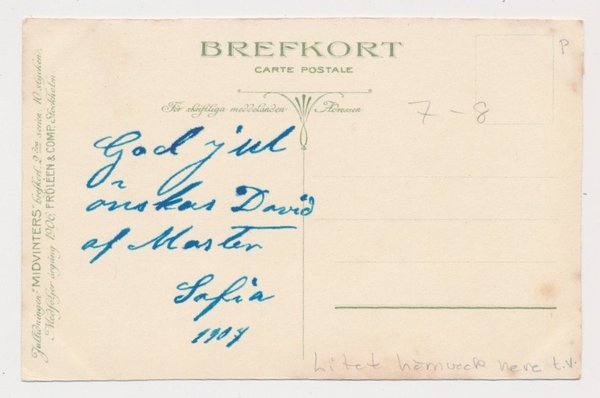 BREFKORT
CARTE POSTALE
För skriftliga meddelanden
Adressen
Jultidningen "MIDVINTERS" brefkort, 2 dra serien, 10 stycken.
Medföljer årgång 1906, FRÖLEEN & COMP. Stockholm
God jul
önskas David
af Moster
Sofia
1907
P
7-8
Litet hörnveck nere t.v.